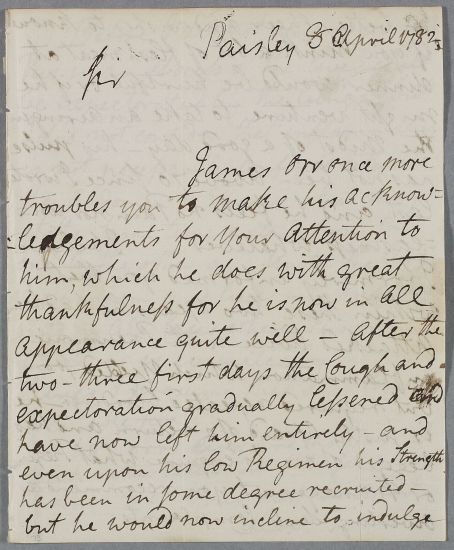 Paisley 8 April 1782
Sir
James Orr once more
troubles you to make his acknow=
=ledgements for your Attention to
him, which he does with great
thankfulness for he is now in all
appearance quite well – After the
two–three first days the Cough and
expectoration gradually lessened and
have now left him entirely – and
even upon his low Regimen his Strength
has been in some degree recruited –
but he would now incline to indulge